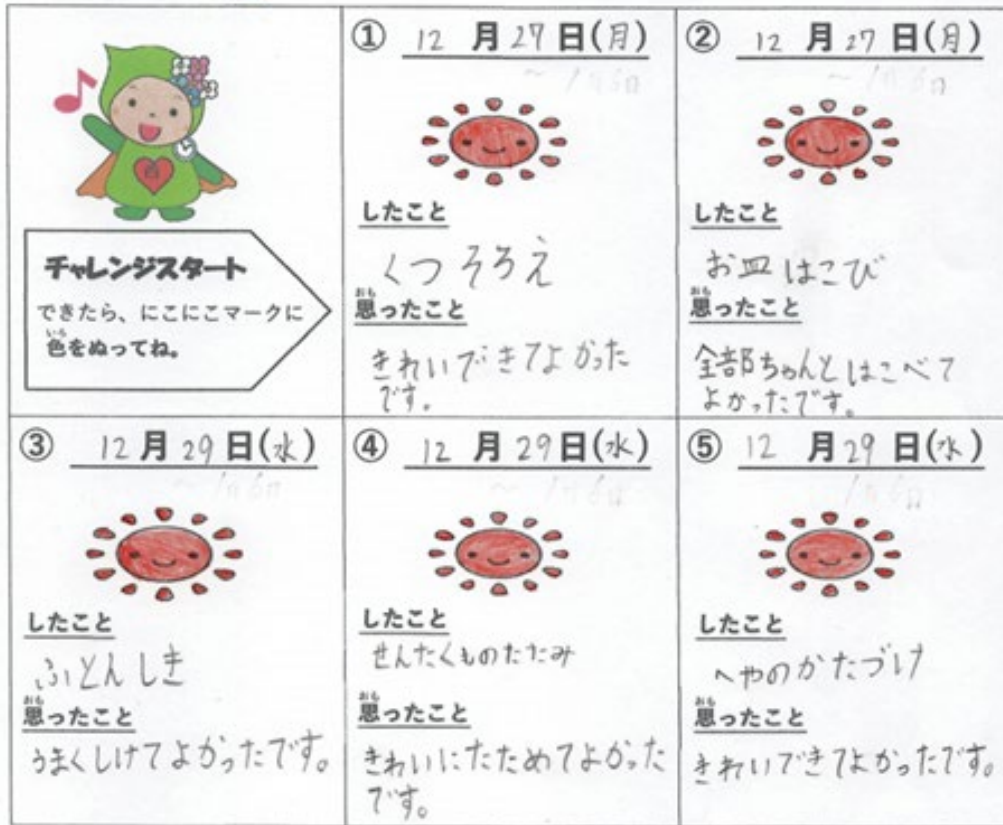 チャレンジスタート
できたら、にこにこマークに
色をぬってね。
① 12月27日(月)
～1月6日
したこと
くつそろえ
思ったこと
きれいできてよかった
です。
② 12月27日(月)
～1月6日
したこと
お皿はこび
思ったこと
全部ちゃんとはこべて
よかったです。
③ 12月29日(水)
～1月6日
したこと
ふとんしき
思ったこと
うまくしけてよかったです。
④ 12月29日(水)
～1月6日
したこと
せんたくものたたみ
思ったこと
きれいにたためてよかった
です。
⑤ 12月29日(水)
1月6日
したこと
へやのかたづけ
思ったこと
きれいできてよかったです。